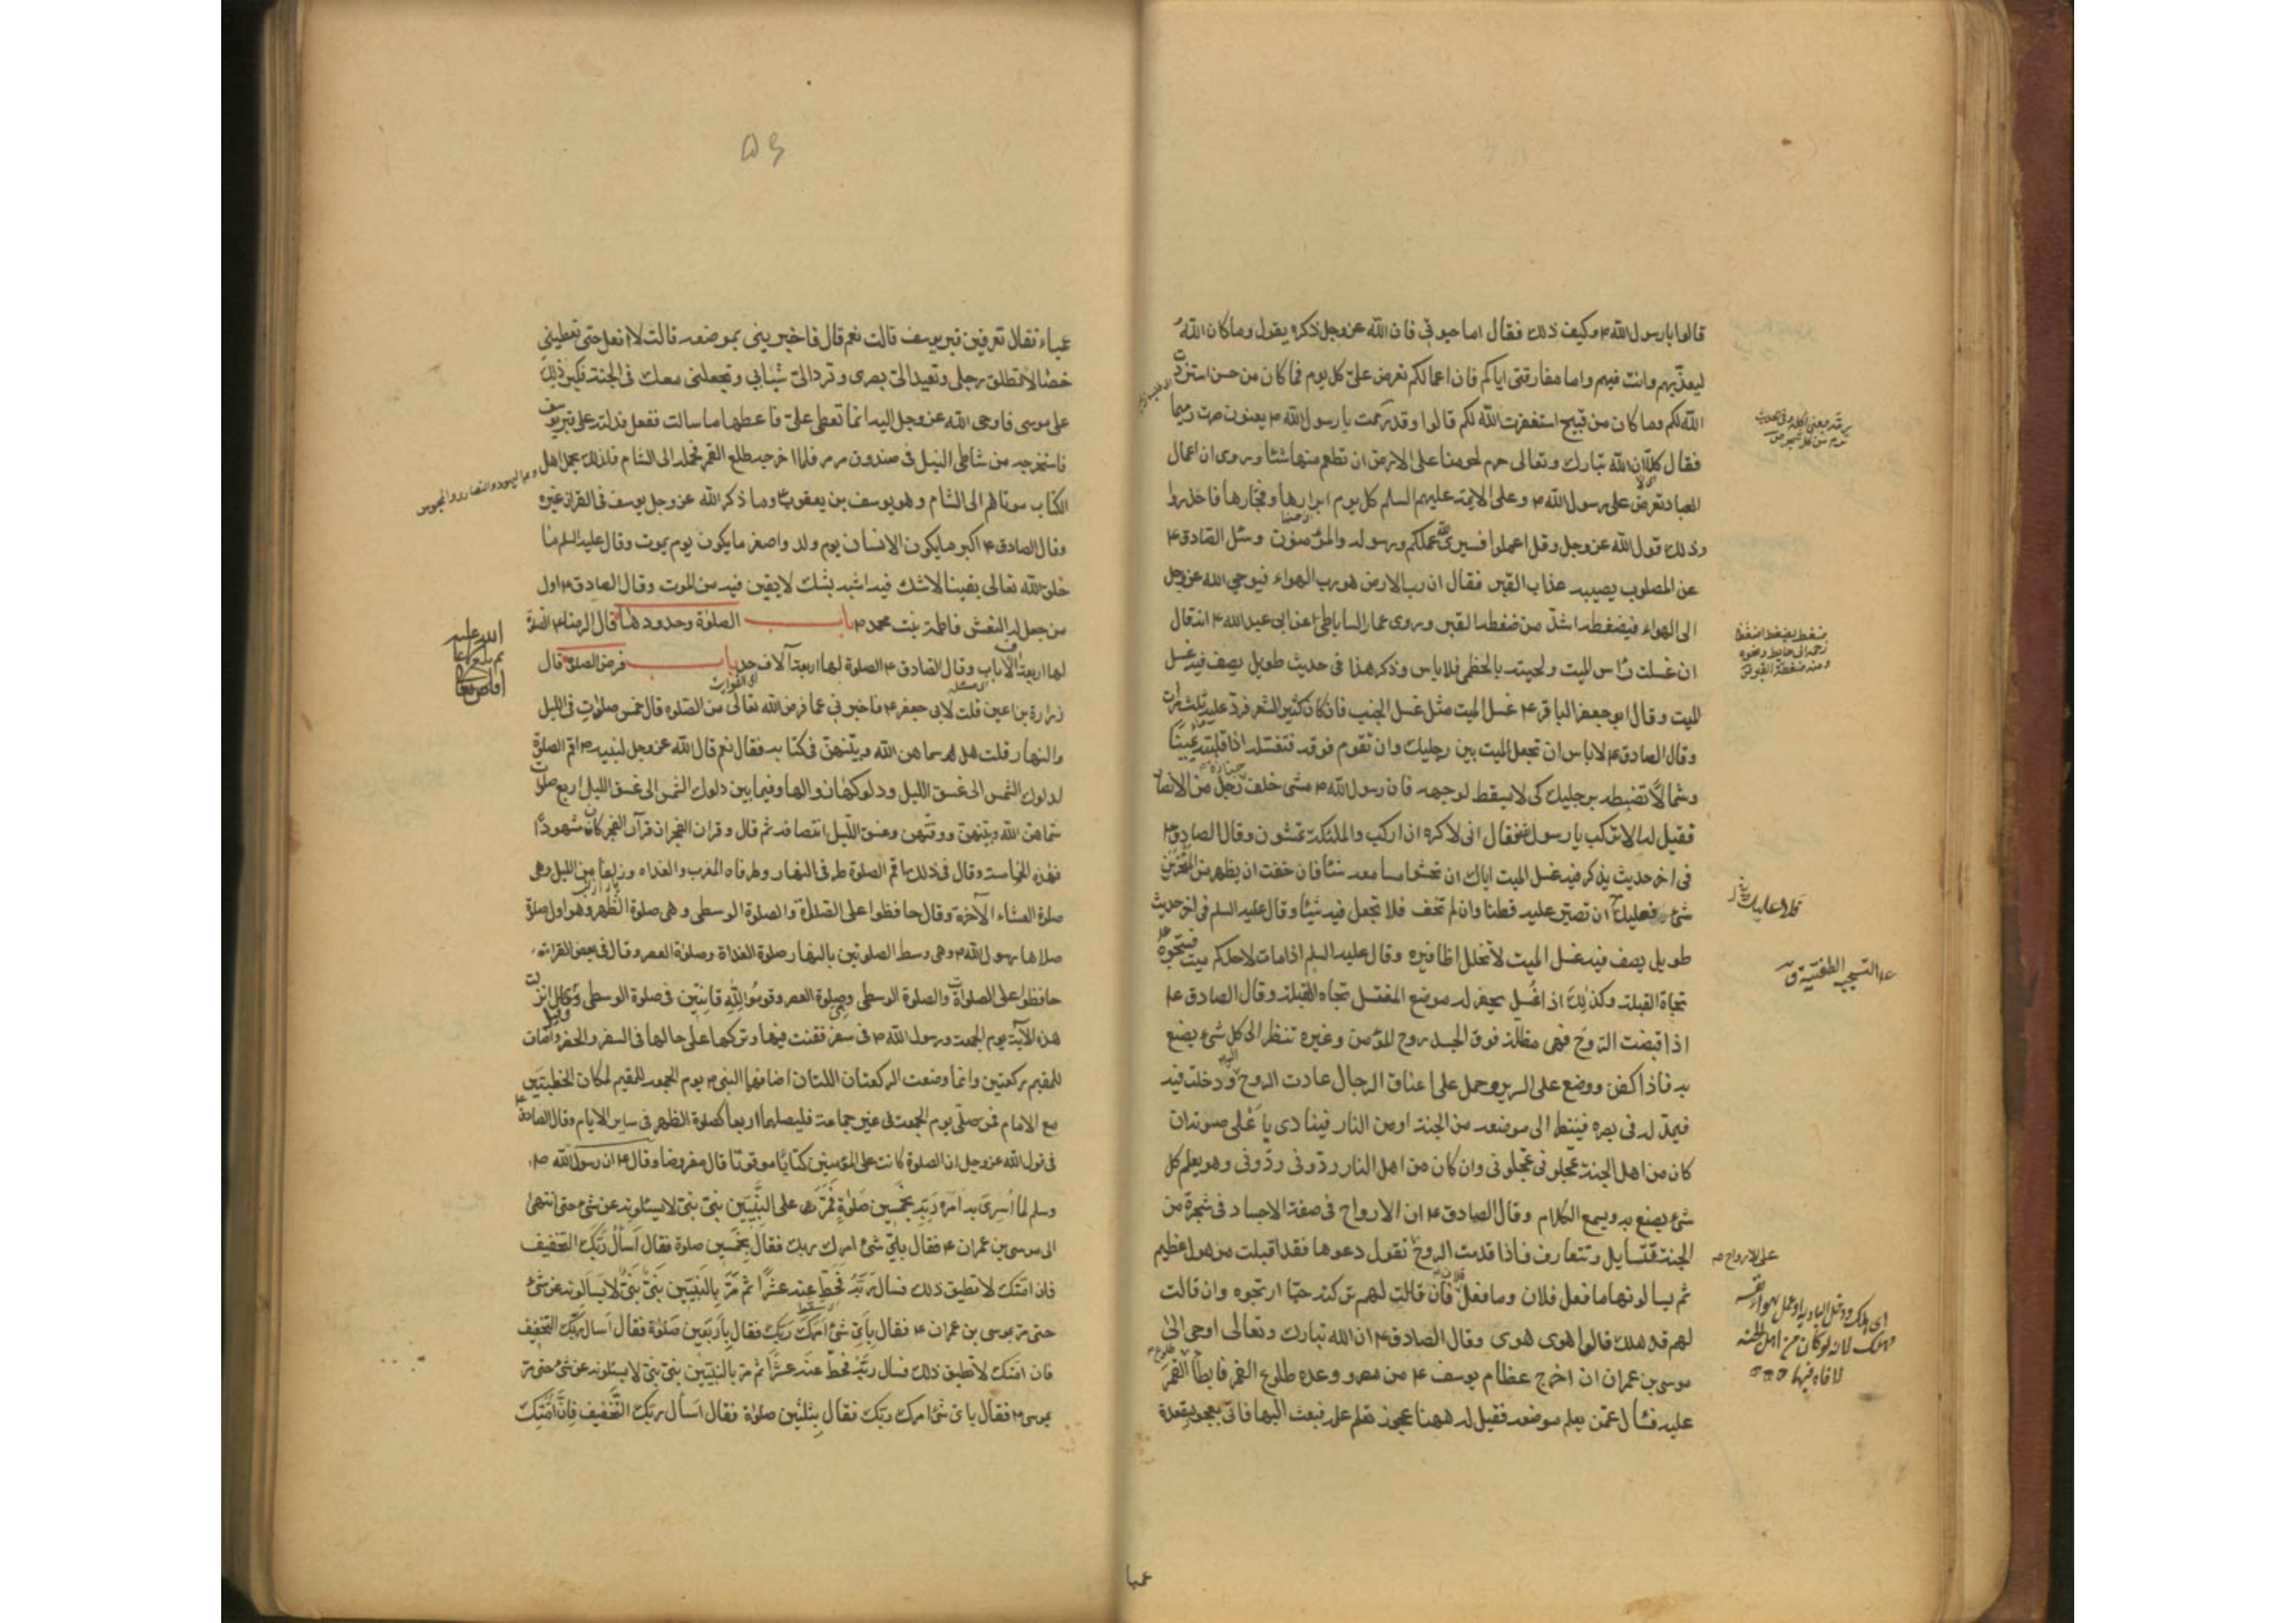 قالوا يا رسول الله ص وكيف ذلك فقال اما حيوتي فان الله عز وجل ذكره يقول وما كان الله
ليعذبهم وانت فيهم واما مفارقتي اياكم فان اعمالكم تعرض علي كل يوم فما كان من حسن استزدت
الله لكم وما كان من قبيح استغفرت الله لكم قالوا وقد رممت يا رسول الله ص يعنون صرت رميما
فقال كلا ان الله تبارك وتعالى حرم لحومنا على الارض ان تطعم منها شئا وروى ان اعمال
العباد تعرض على رسول الله ص وعلى الائمة عليهم السلم كل يوم ابرارها وفجارها فاحذروا
وذلك قول الله عز وجل وقل اعملوا فسيرى الله عملكم ورسوله والمؤمنون وسئل الصادق ع
عن المصلوب يصيبه عذاب القبر فقال ان رب الارض هو رب الهواء فيوحي الله عز وجل
الى الهواء فيضغطه اشد من ضغطة القبر وروى عمار الساباطي عن ابي عبد الله ع انه قال
ان غسلت راس الميت ولحيته بالخطمي فلا باس وذكر هذا في حديث طويل يصف فيه غسل
الميت وقال ابو جعفر الباقر ع غسل الميت مثل غسل الجنب فان كان كثير الشعر فرد عليه ثلث مرات
وقال الصادق ع لا باس ان تجعل الميت بين رجليك وان تقوم فوقه فتغسله اذا قلبته يمينا
وشمالا تضبطه برجليك كي لا يسقط لوجهه فان رسول الله ص مشى خلف جنازة رجل من الانصار
فقيل له الا تركب يا رسول الله فقال اني لاكره ان اركب والملئكة تمشون وقال الصادق ع
في اخر حديث يذكر فيه غسل الميت اياك ان تحشو مسامعه شئا فان خفت ان يظهر من المنخرين
شئ فعليك ان تصير عليه قطنا وان لم تخف فلا تجعل فيه شيئا وقال عليه السلم في اخر حديث
طويل يصف فيه غسل الميت لا تخلل اظافيره وقال عليه السلم اذا مات لاحدكم ميت فسجوه
تجاه القبلة وكذلك اذا غسل يحفر له موضع المغتسل تجاه القبلة وقال الصادق ع
اذا قبضت الروح فهي مظلة فوق الجسد روح المؤمن وغيره تنظر الى كل شئ يصنع
به فاذا كفن ووضع على السرير وحمل على اعناق الرجال عادت الروح اليه ودخلت فيه
فيمد له في بصره فينظر الى موضعه من الجنة او من النار فينادي باعلى صوته ان
كان من اهل الجنة عجلوني عجلوني وان كان من اهل النار ردوني ردوني وهو يعلم كل
شئ يصنع به ويسمع الكلام وقال الصادق ع ان الارواح في صفة الاجساد في شجرة من
الجنة تتسايل وتتعارف فاذا قدمت الروح تقول دعوها فقد اقبلت من هول عظيم
ثم يسالونها ما فعل فلان وما فعل فلان فان قالت لهم تركته حيا ارتجوه وان قالت
لهم قد هلك قالوا هوى هوى وقال الصادق ع ان الله تبارك وتعالى اوحى الى
موسى بن عمران ان اخرج عظام يوسف ع من مصر ووعده طلوع القمر فابطأ القمر
عليه فسأل عمن يعلم موضعه فقيل له ههنا عجوز تعلم علمه فبعث اليها فاتى بعجوز مقعدة
على الارواح ص
عميا
۵۶
عمياء فقال تعرفين قبر يوسف قالت نعم قال فاخبريني بموضعه قالت لا افعل حتى تعطيني
خصالا تطلق رجلي وتعيد الي بصري وترد الي شبابي وتجعلني معك في الجنة فكبر ذلك
على موسى فاوحى الله عز وجل اليه انما تعطي علي فاعطها ما سالت ففعل فدلته على قبر يوسف
فاستخرجه من شاطئ النيل في صندوق مرمر فلما اخرجه طلع القمر فحمله الى الشام فلذلك يحمل اهل
الكتاب موتاهم الى الشام وهو يوسف بن يعقوب ع وما ذكر الله عز وجل يوسف في القران غيره
وهم اليهود والنصارى والمجوس
وقال الصادق ع اكبر ما يكون الانسان يوم ولد واصغر ما يكون يوم يموت وقال عليه السلم ما
خلق الله تعالى يقينا لا شك فيه اشبه بشك لا يقين فيه من الموت وقال الصادق ع اول
من جعل له النعش فاطمة بنت محمد ص باب الصلوة وحدودها قال الرضا ع الصلوة
لها اربعة الاف باب وقال الصادق ع الصلوة لها اربعة آلاف حد باب فرض الصلوة قال
زرارة بن اعين قلت لابي جعفر ع فاخبرني عما فرض الله تعالى من الصلوه قال خمس صلوات في الليل
والنهار قلت هل سماهن الله وبينهن في كتابه فقال نعم قال الله عز وجل لنبيه ص اقم الصلوة
لدلوك الشمس الى غسق الليل ودلوكها زوالها وفيما بين دلوك الشمس الى غسق الليل اربع صلوات
سماهن الله وبينهن ووقتهن وغسق الليل انتصافه ثم قال وقران الفجر ان قرآن الفجر كان مشهودا
فهذه الخامسة وقال في ذلك اقم الصلوة طرفي النهار وطرفاه المغرب والغداه وزلفا من الليل وهي
صلوة العشاء الآخرة وقال حافظوا على الصلوات والصلوة الوسطى وهي صلوة الظهر وهو اول صلوة
صلاها رسول الله ص وهي وسط الصلوتين بالنهار صلوة الغداة وصلوة العصر وقال في بعض القراءة
حافظوا على الصلوات والصلوة الوسطى وصلوة العصر وقوموا لله قانتين في صلوة الوسطى وقيل انزلت
هذه الآية يوم الجمعة ورسول الله ص في سفر فقنت فيها وتركها على حالها في السفر والحضر واضاف
للمقيم ركعتين وانما وضعت الركعتان اللتان اضافهما النبي ص يوم الجمعة للمقيم لمكان الخطبتين
مع الامام فمن صلى يوم الجمعة في غير جماعة فليصلها اربعا كصلوة الظهر في ساير الايام وقال الصادق ع
في قول الله عز وجل ان الصلوة كانت على المؤمنين كتابا موقوتا قال مفروضا وقال ع ان رسول الله ص
وسلم لما اسري به امره ربه بخمسين صلوة فمر على النبيين نبي نبي لا يسئلونه عن شئ حتى انتهى
الى موسى بن عمران ع فقال باي شئ امرك ربك فقال بخمسين صلوة فقال اسأل ربك التخفيف
فان امتك لا تطيق ذلك فسال ربه فحط عنه عشرا ثم مر بالنبيين نبي نبي لا يسالونه عن شئ
حتى مر بموسى بن عمران ع فقال باي شئ امرك ربك فقال باربعين صلوة فقال اسأل ربك التخفيف
فان امتك لا تطيق ذلك فسال ربه فحط عنه عشرا ثم مر بالنبيين نبي نبي لا يسئلونه عن شئ حتى مر
بموسى ع فقال باي شئ امرك ربك فقال بثلثين صلوة فقال اسأل ربك التخفيف فان امتك